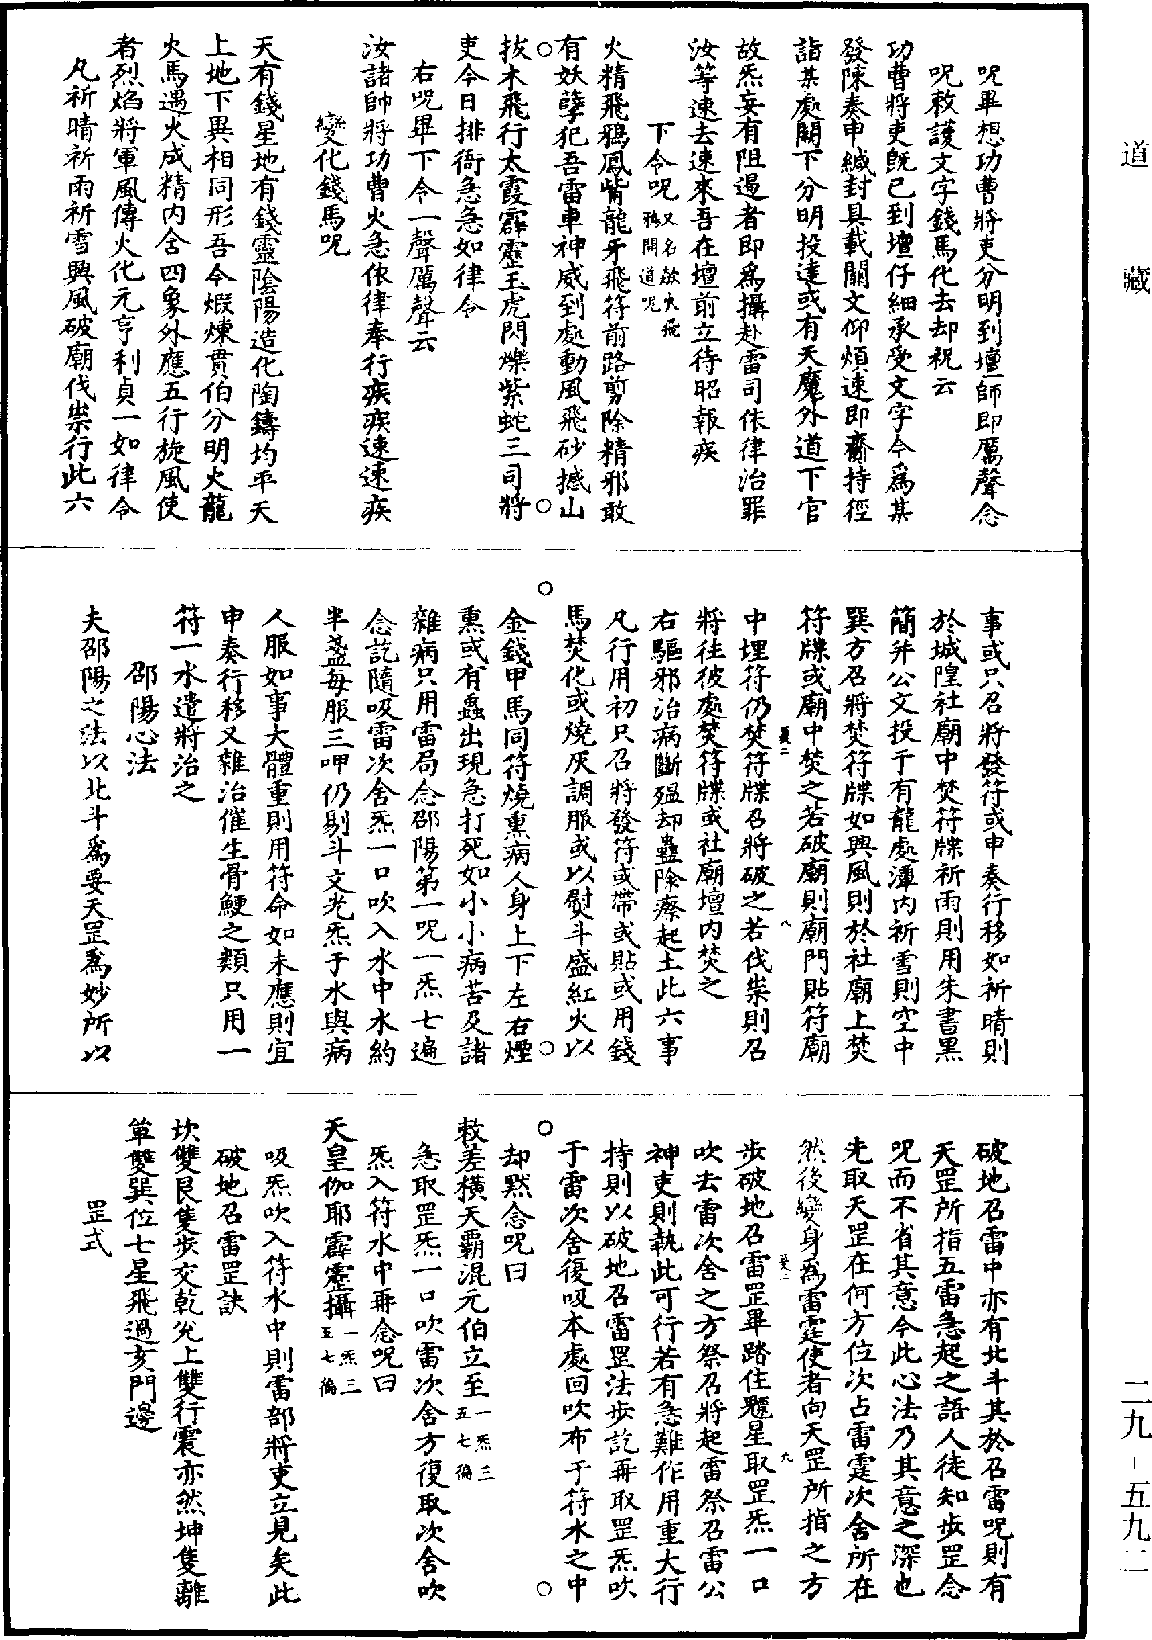 道藏
咒畢想功曹將吏分明到壇師即厲聲念
咒敕護文字錢馬化去却祝云
功曹將吏旣已到壇仔細承受文字今爲某
發陳奏申緘封具載關文仰煩速即齎持徑
詣某處闕下分明投達或有天魔外道下官
故炁妄有阻遏者即爲攝赴雷司依律治罪
汝等速去速來吾在壇前立待昭報疾
下令咒又名歘火飛鴉開道咒
火精飛鴉鳳觜龍牙飛符前路剪除精邪敢
有妖孽犯吾雷車神威到處動風飛砂撼山
拔木飛行太霞霹靂玉虎閃爍紫蛇三司將
吏今日排衙急急如律令
右咒畢下令一聲厲聲云
汝諸帥將功曹火急依律奉行疾疾速速疾
變化錢馬咒
天有錢星地有錢靈陰陽造化陶鑄均平天
上地下異相同形吾今煆煉貫伯分明火龍
火馬遇火成精內含四象外應五行旋風使
者烈焰將軍風傳火化元亨利貞一如律令
凡祈晴祈雨祈雪興風破廟伐祟行此六
事或只召將發符或申奏行移如祈晴則
於城隍社廟中焚符牒祈雨則用朱書黑
簡并公文投于有龍處潭內祈雪則空中
巽方召將焚符牒如興風則於社廟上焚
符牒或廟中焚之若破廟則廟門貼符廟
中埋符仍焚符牒召將破之若伐祟則召
將往彼處焚符牒或社廟壇內焚之
右驅邪治病斷瘟却蠱除瘵起土此六事
凡行用初只召將發符或帶或貼或用錢
馬焚化或燒灰調服或以熨斗盛紅火以
金錢甲馬同符燒熏病人身上下左右煙
熏或有蟲出現急打死如小小病苦及諸
雜病只用雷局念邵陽第一咒一炁七遍
念訖隨吸雷次舍炁一口吹入水中水約
半盞每服三呷仍剔斗文光炁于水與病
人服如事大體重則用符命如未應則宜
申奏行移又雜治催生骨鯁之類只用一
符一水遣將治之
邵陽心法
夫邵陽之法以北斗爲要天罡爲妙所以
破地召雷中亦有北斗其於召雷咒則有
天罡所指五雷急起之語人徒知步罡念
咒而不省其意今此心法乃其意之深也
先取天罡在何方位次占雷霆次舍所在
然後變身爲雷霆使者向天罡所指之方
步破地召雷罡畢踏住魒星取罡炁一口
吹去雷次舍之方祭召將起雷祭召雷公
神吏則執此可行若有急難作用重大行
持則以破地召雷罡法步訖再取罡炁吹
于雷次舍復吸本處回吹布于符水之中
却默念咒曰
敕差橫天霸混元伯立至一炁三五七徧
急取罡炁一口吹雷次舍方復取次舍吹
炁入符水中再念咒曰
天皇伽耶霹靂攝一炁三五七徧
吸炁吹入符水中則雷部將吏立見矣此
破地召雷罡訣
坎雙艮隻步交乾兊上雙行震亦然坤隻離
單雙巽位七星飛過亥門邊
罡式